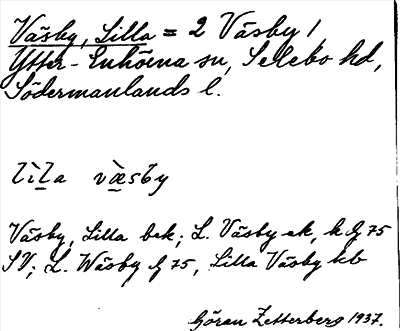 Väsby, Lilla = 2 Väsby /
Ytter-Enhörna sn, Selebo hd,
Södermanlands l.
lìla væ̀sby
Väsby, Lilla bek; L. Väsby ek, k G 75
SV; L. Wäsby G 75, Lilla Väsby kb
Göran Zetterberg 1937.